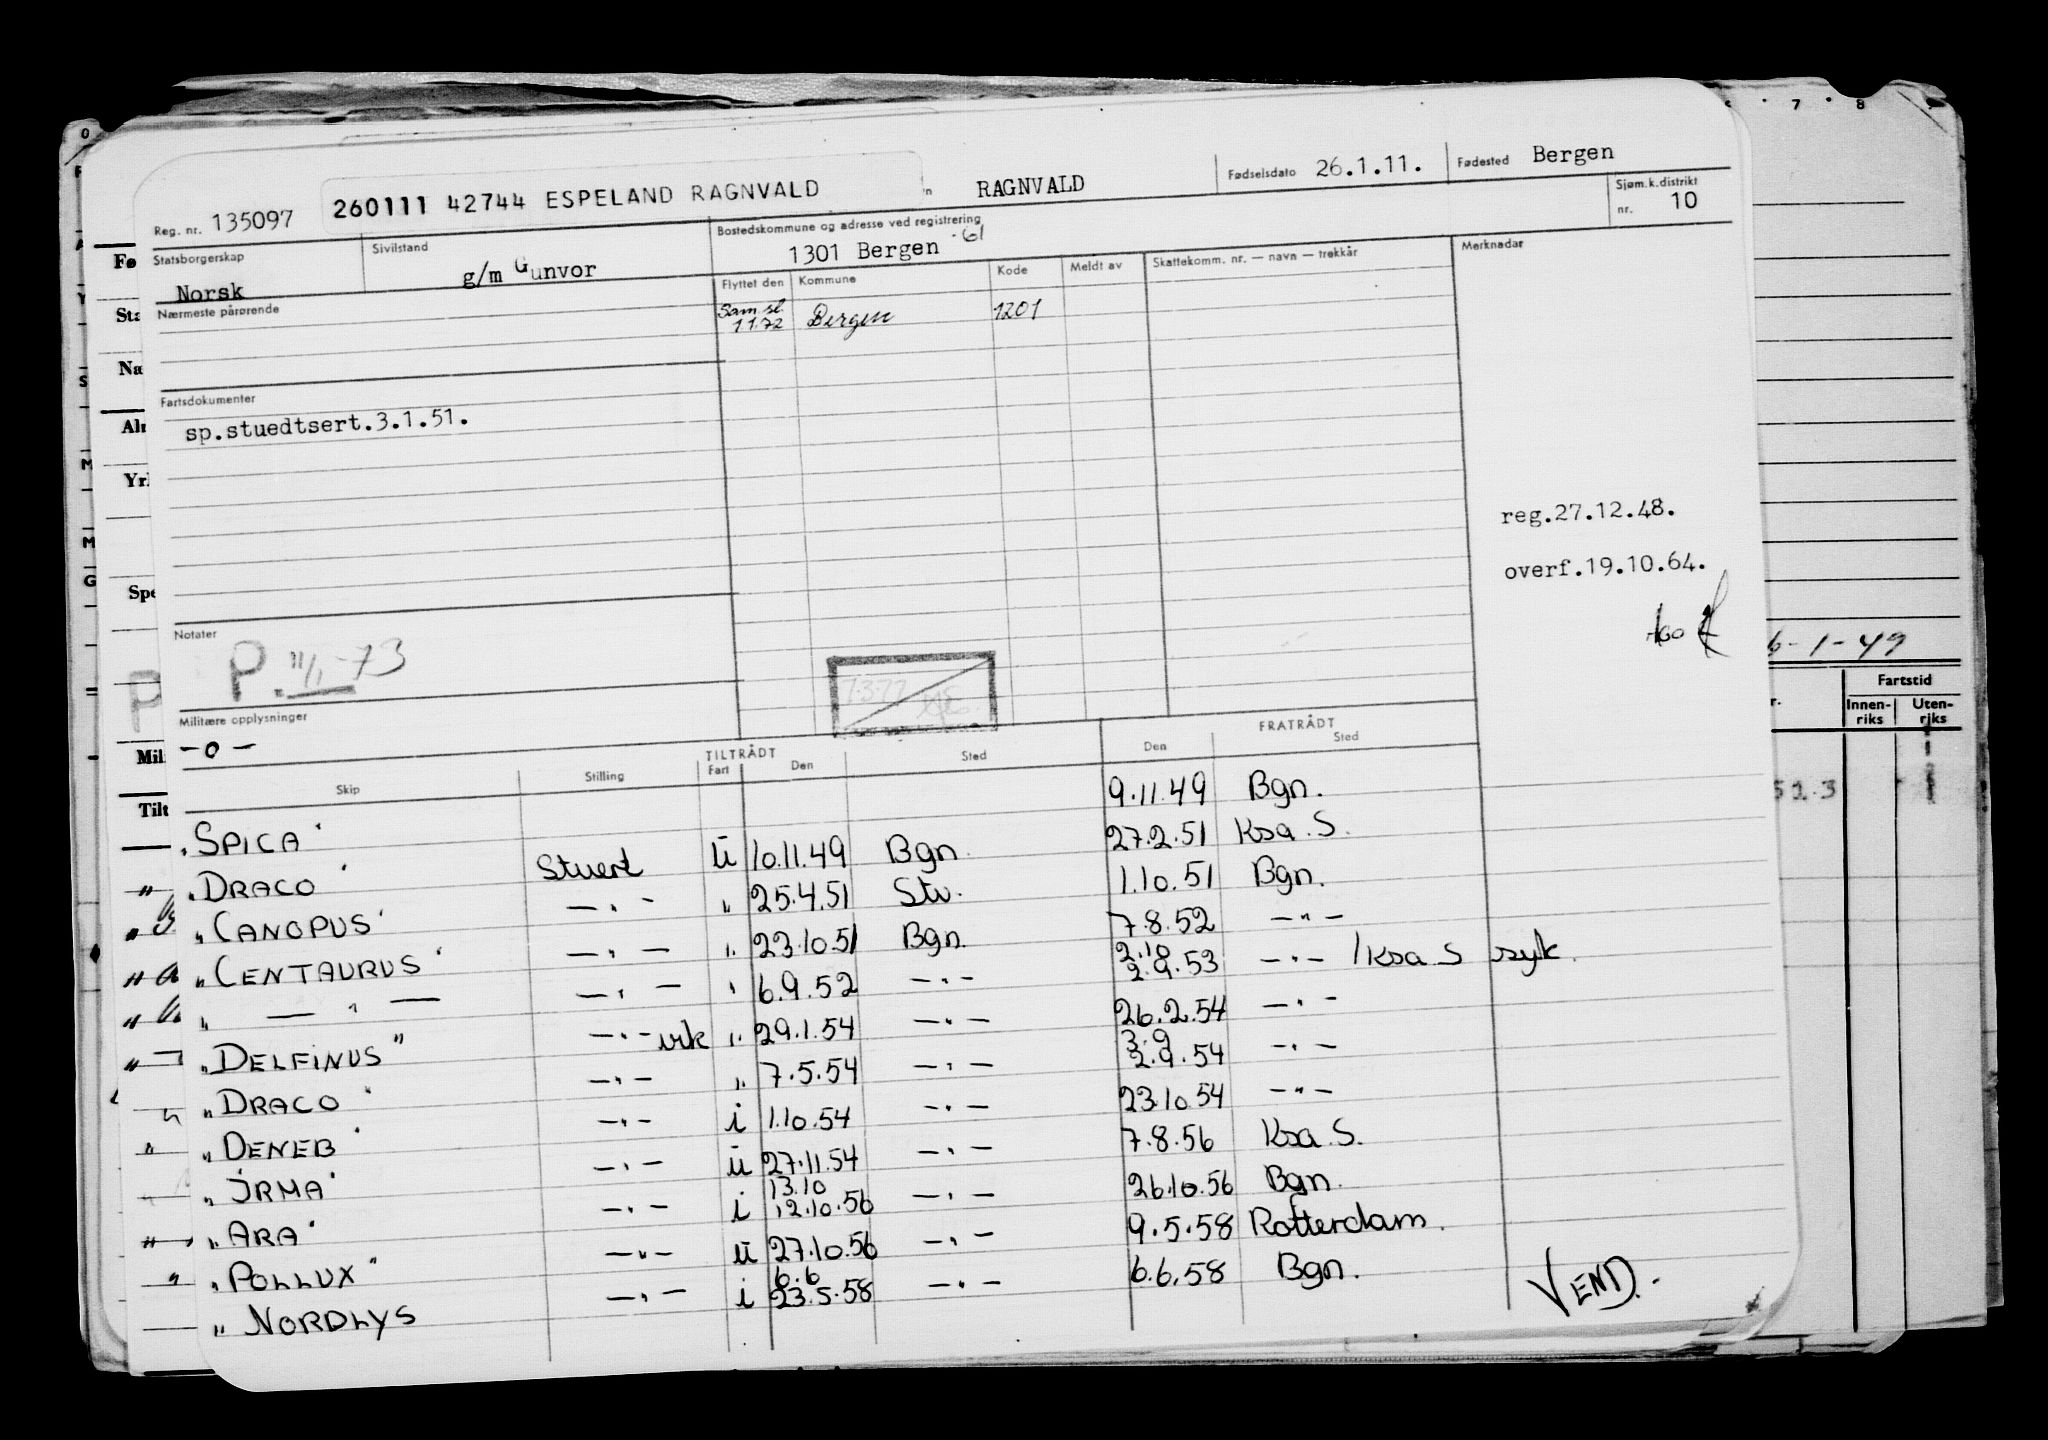 6 · 7 · 8
260111 42744 ESPELAND RAGNVALD
RAGNVALD
Fødselsdato 26.1.11.
Fødested Bergen
Reg. nr. 135097
Statsborgerskap
Norsk
Sivilstand
g/m Gunvor
Bostedskommune og adresse ved registrering
1301 Bergen -61
Sjøm.k.distrikt
nr. 10
Nærmeste pårørende
Flyttet den Kommune Kode Meldt av Skattekomm. nr. — navn — trekkår
Merknader
Sam.sl.
1 1.72 Bergen 1201
Fartsdokumenter
sp.stuedtsert.3.1.51.
reg.27.12.48.
overf.19.10.64.
Notater
P. 11/1-73
6-1-49
Fartstid
Innen-
riks
Uten-
riks
Militære opplysninger
-o-
TILTRÅDT FRATRÅDT
Skip Stilling Fart Den Sted Den Sted
9.11.49 Bgn.
" SPICA Stuert ü 10.11.49 Bgn. 27.2.51 Ksa. S.
" DRACO — " — " 25.4.51 Stv. 1.10.51 Bgn.
" CANOPUS — " — " 23.10.51 Bgn. 7.8.52 — " —
" CENTAURUS — " — " 6.9.52 — " — 2.10 2.9.53 — " — / Ksa S syk.
" — " — — " — vik " 29.1.54 — " — 26.2.54 — " —
" DELFINUS — " — " 7.5.54 — " — 3.9 2.9.54 — " —
" DRACO — " — i 1.10.54 — " — 23.10.54 — " —
" DENEB — " — ü 27.11.54 — " — 7.8.56 Ksa. S.
" IRMA — " — i 13.10 12.10.56 — " — 26.10.56 Bgn.
" ARA — " — ü 27.10.56 — " — 9.5.58 Rotterdam.
" POLLUX — " — i 6.6 23.5.58 — " — 6.6.58 Bgn.
" NORDLYS
VEND.